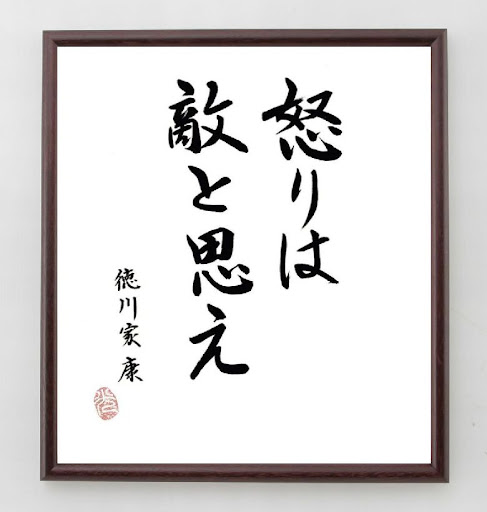 怒りは
敵と思え
徳川家康